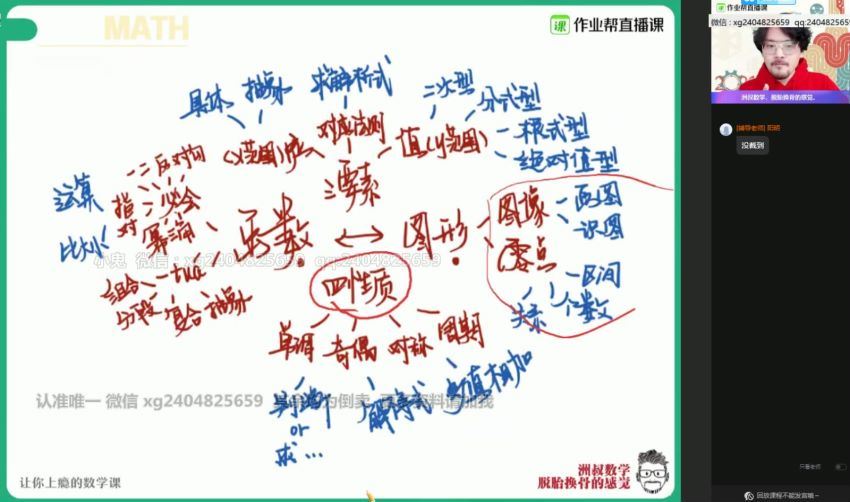 MATH
作业帮直播课
作业帮直播课
微信:xg2404825659 qq:2404825659
洲叔数学,脱胎换骨的感觉。
[辅导老师] 阳明
没截到
具体
抽象
求解析式
二次型
分式型
(x范围)
对应法则
值(y范围)
根式型
绝对值型
三要素
一二反对勾
运算
指
必会
对
幂三角
比大小
函数
图形
图像
画图
识图
零点
区间
个数
关系
小鬼 微信:xg2404825659 qq:2404825659
四性质
组合
分段
复合
抽象
单调
奇偶
对称
周期
判断
or
求...
解不等式
认准唯一 微信 xg2404825659
让你上瘾的数学课
洲叔数学
脱胎换骨的感觉
只看老师
回放课程不能发言哦~